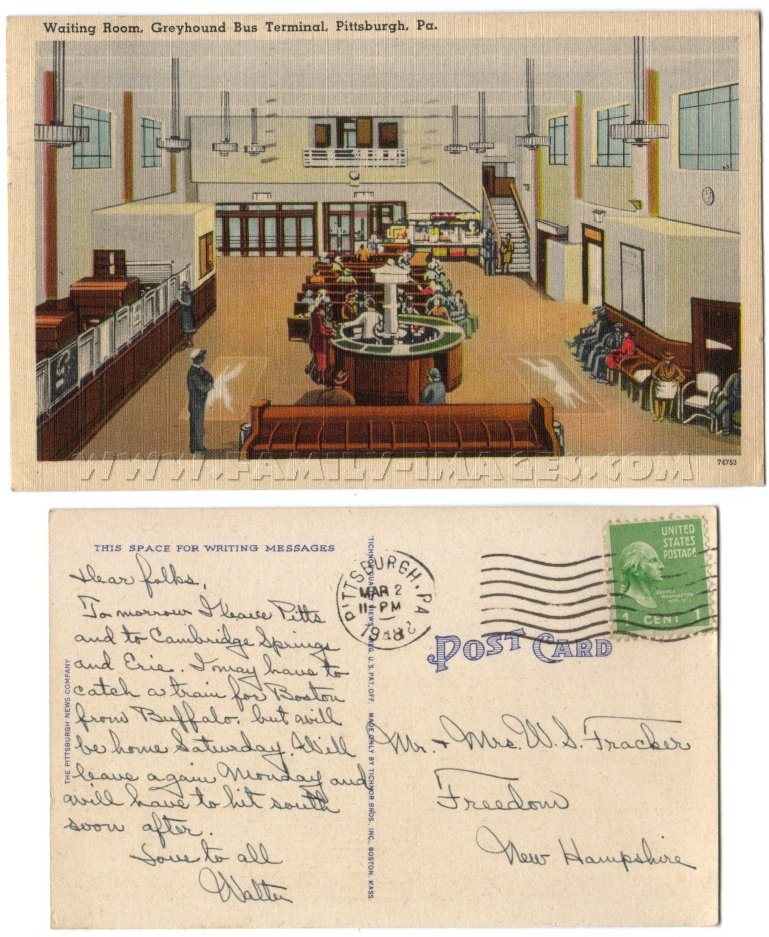 Waiting Room, Greyhound Bus Terminal, Pittsburgh, Pa.
WWW.FAMILY-IMAGES.COM
74753
THIS SPACE FOR WRITING MESSAGES
Dear folks,
Tomorrow I leave Pitts
and to Cambridge Springs
and Erie. I may have to
catch a train for Boston
from Buffalo, but will
be home Saturday. Will
leave again Monday and
will have to hit south
soon after.
Love to all
Walter
THE PITTSBURGH NEWS COMPANY
MADE ONLY BY TICHNOR BROS. INC., BOSTON, MASS.
PITTSBURGH, PA.
MAR 2
11 PM
1948
UNITED
STATES
POSTAGE
GEORGE
WASHINGTON
1 CENT
POST CARD
Mr. + Mrs. W. S. Fracker
Freedom
New Hampshire